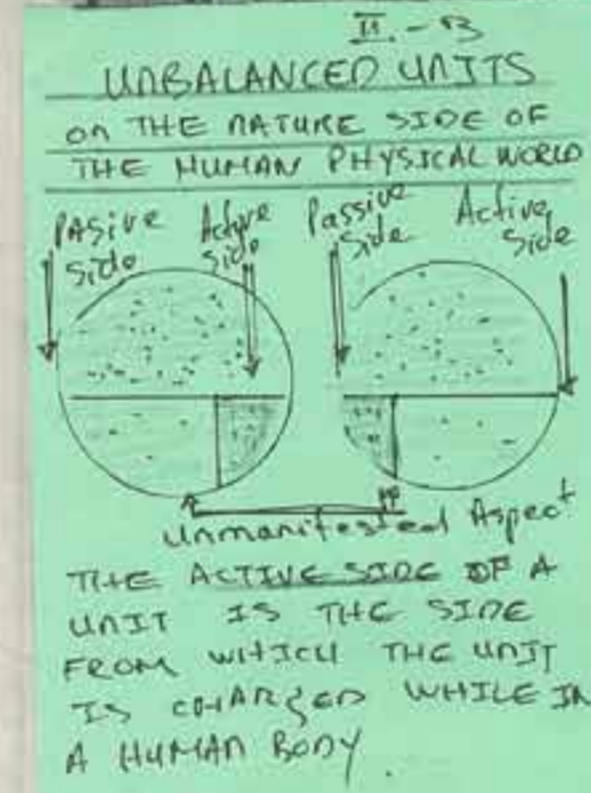 II. - B
UNBALANCED UNITS
ON THE NATURE SIDE OF
THE HUMAN PHYSICAL WORLD
PASive side Active side Passive side Active side
Unmanifested Aspect
THE ACTIVE SIDE OF A
UNIT IS THE SIDE
FROM WHICH THE UNIT
IS CHARGED WHILE IN
A HUMAN BODY.